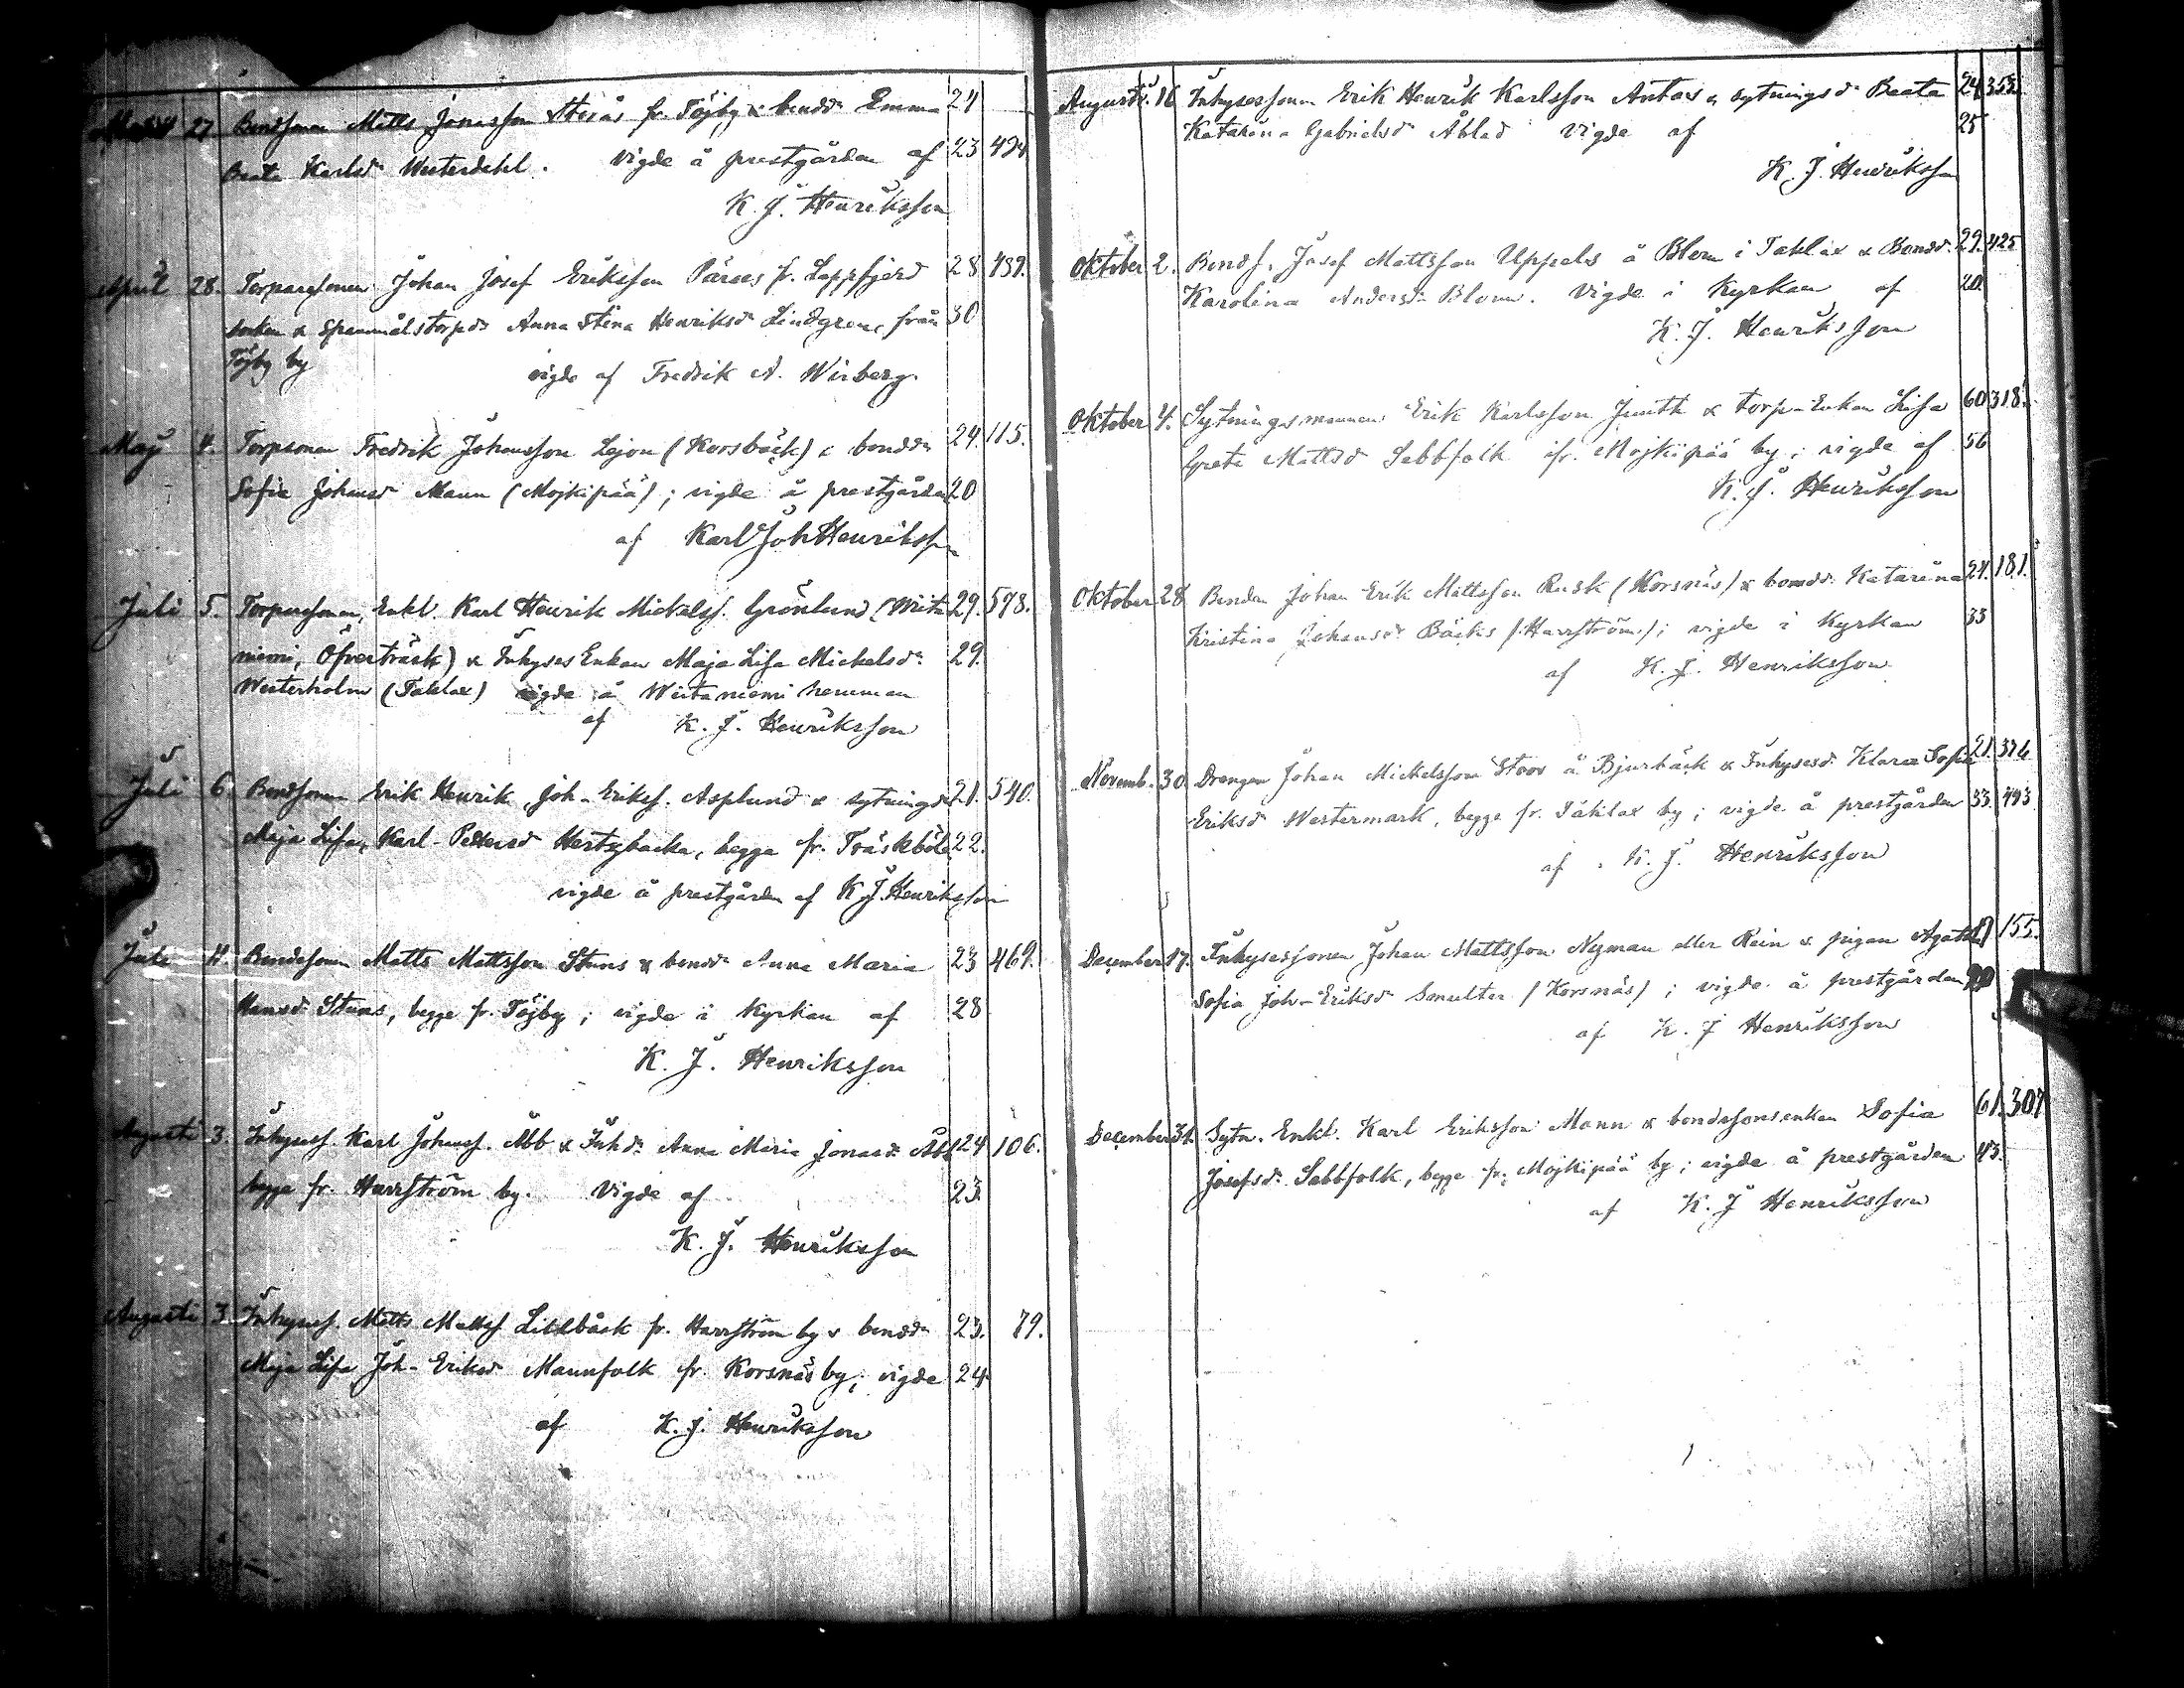 27 Bondsonen Matts Jonasson Storås fr. Töjby & bondd. Emma 24
Beata Karlsd. Westerdahl. Vigde å prestgården af 23 424
K. J. Henriksson
April 28. Torparesonen Johan Josef Eriksson Pärus fr. Lappfjerd 28 489.
socken & Spannmålstorpds Anna Stina Henriksd. Lindgren, från 30
Töjby by vigde af Fredrik A. Wirberg.
Maj 4. Torpsonen Fredrik Johansson Lejon (Korsbäck) & bondd. 24. 115.
Sofia Johansd. Mann (Mojkipää); vigde å prestgården 20
af Karl Joh Henriksson
Juli 5. Torparesonen, Enkl. Karl Henrik Mickelss. Grönlund (Wirta 29. 578.
niemi, Öfverträsk) & Inhyses Enkan Maja Lisa Mickelsd. 29.
Westerholm (Taklax) vigde å Wirtaniemi hemman
af K. J. Henriksson
Juli 6. Bondsonen Erik Henrik Joh-Erikss. Asplund & sytningsd. 21. 540.
Maja Lisa, Karl-Pettersd. Hertzbacka, begge fr. Träskböle 22.
vigde å prestgården af K J Henriksson
Juli 11. Bondesonen Matts Mattsson Stuns & bondd. Anna Maria 23 469.
Hansd. Stuns, begge fr. Töjby; vigde i Kyrkan af 28
K. J. Henriksson
Augusti 3. Inhyness. Karl Johanss. Abb & Inhd. Anna Maria Jonasd. Abb 24 106.
begge fr. Harrström by. Vigde af 23.
K. J. Henriksson
Augusti 3. Inhyness. Matts Mattss Lillbäck fr. Harrström by & bondd. 23. 79.
Maja Lisa Joh-Eriksd. Mannfolk fr. Korsnäs by; vigde 24.
af K. J. Henriksson
Augusti. 16 Inhysessonen Erik Henrik Karlsson Antas & sytningsd. Beata 24 353.
Katarina Gabrielsd. Åblad vigde af 25
K. J. Henriksson
Oktober 2. Bonds. Josef Mattsson Uppals å Blom i Taklax & Bondd. 29. 425
Karolina Andersd. Blom. Vigde i Kyrkan af 20.
K. J. Henriksson
Oktober 4. Sytningsmannen Erik Karlsson Smith & torp-Enkan Lisa 60 318.
Greta Mattsd. Sabbfolk ifr. Mojkipää by; vigde af 56
K. J. Henriksson
Oktober 28 Bonden Johan Erik Mattsson Rusk (Korsnäs) & bondd. Katarina 24. 181.
Kristina Johansd. Bäcks (Harrström); vigde i Kyrkan 33
af K. J. Henriksson
Novemb. 30. Drengen Johan Mickelsson Stoor å Bjurbäck & Inhysesd. Klara Sofia 21. 376
Eriksd. Westermark, begge fr. Taklax by; vigde å prestgården 33. 493
af K. J. Henriksson
December 17. Inhysessonen Johan Mattsson Nyman eller Rein & pigan Agata 155.
Sofia Joh-Eriksd. Smulter (Korsnäs); vigde å prestgården
af K. J Henriksson
December 31. Sytn. Enkl. Karl Eriksson Mann & bondesonsenkan Sofia 61. 307
Josefsd. Sabbfolk, begge fr. Mojkipää by; vigde å prestgården 43.
af K. J Henriksson